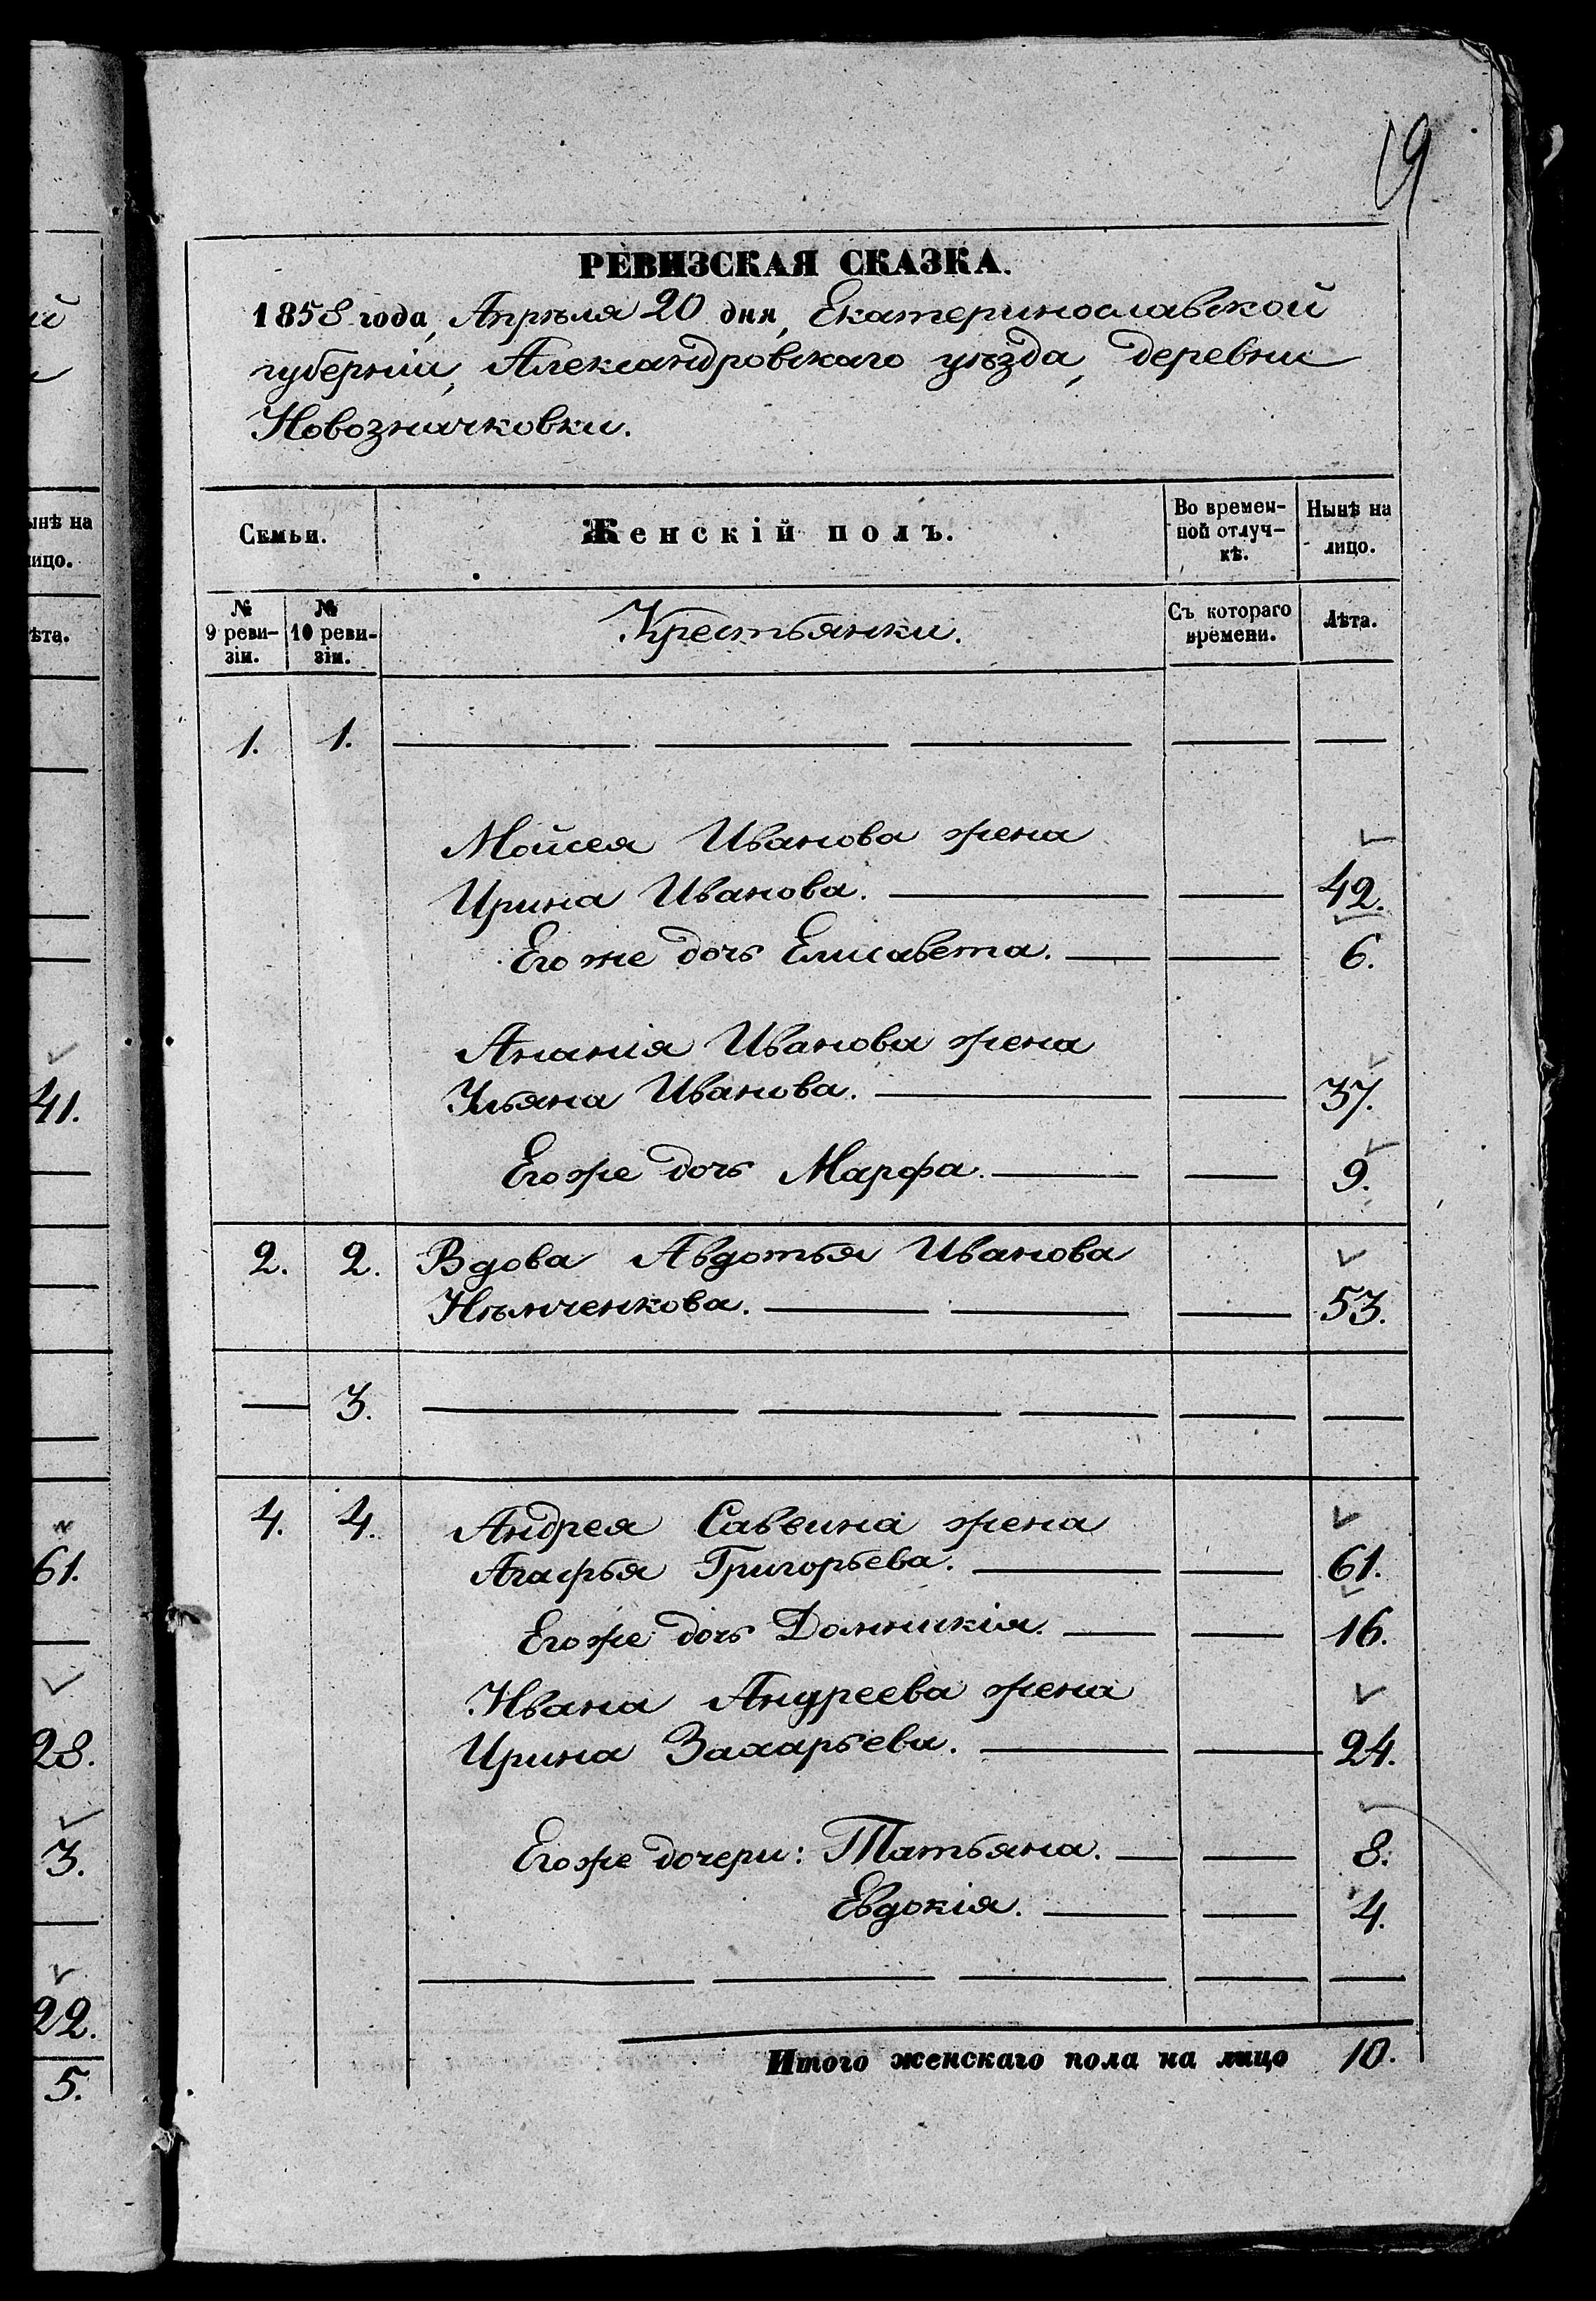 19
РЕВИЗСКАЯ СКАЗКА.
1858 года, Апрѣля 20 дня, Екатеринославской
губерніи, Александровскаго уѣзда, деревни
Новозначковки.
Семьи.
Женскій полъ.
Во времен-
ной отлуч-
кѣ.
Нынѣ на
лицо.
№
9 реви-
зіи.
№
10 реви-
зіи.
Крестьянки.
Съ котораго
времени.
Лѣта.
1. 1.
Мойсея Иванова жена
Ирина Иванова. 42.
Его же дочь Елисавета. 6.
Ананія Иванова жена
Ульяна Иванова. 37.
Егоже дочь Марфа. 9.
2. 2. Вдова Авдотья Иванова
Нѣмченкова. 53.
3.
4. 4. Андрея Саввина жена
Агафья Григорьева. 61.
Егоже дочь Домникія. 16.
Ивана Андреева жена
Ирина Захарьева. 24.
Егоже дочери: Татьяна. 8.
Евдокія. 4.
Итого женскаго пола на лицо 10.
ынѣ на
ицо.
ѣта.
41.
61.
28.
3.
22.
5.